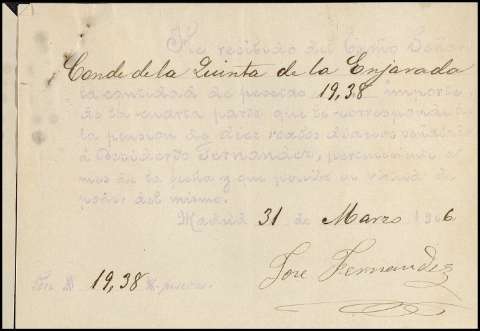 He recibido del Excmo Señor
Conde de la Quinta de la Enjarada
la cantidad de pesetas 19,38 importe
de la cuarta parte que le corresponde
la pension de diez reales diarios
á Desiderio Fernandez,
mes de la fecha y que percibo en virtud de
poder del mismo.
Madrid 31 de Marzo 19 6
José Fernandez
Son # 19,38 # pesetas.